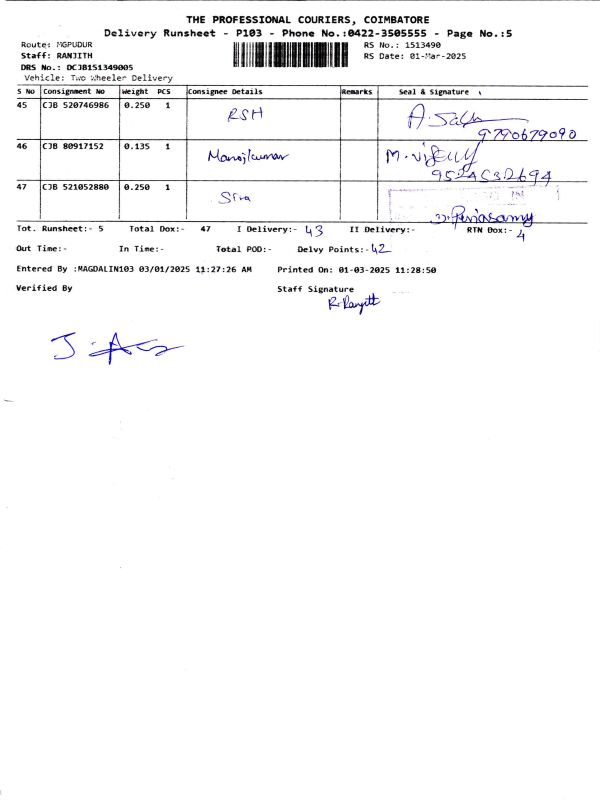 THE PROFESSIONAL COURIERS, COIMBATORE
Delivery Runsheet - P103 - Phone No.:0422-3505555 - Page No.:5
Route: MGPUDUR RS No.: 1513490
Staff: RANJITH RS Date: 01-Mar-2025
DRS No.: DCJB151349005
Vehicle: Two Wheeler Delivery
S No Consignment No Weight PCS Consignee Details Remarks Seal & Signature
45 CJB 520746986 0.250 1 RSH
9790679090
46 CJB 80917152 0.135 1 Manojkumar
47 CJB 521052880 0.250 1 Siva
Periasamy
Tot. Runsheet:- 5 Total Dox:- 47 I Delivery:- 43 II Delivery:- RTN Dox:- 4
Out Time:- In Time:- Total POD:- Delvy Points:- 42
Entered By :MAGDALIN103 03/01/2025 11:27:26 AM Printed On: 01-03-2025 11:28:50
Verified By Staff Signature
R. Ranjith